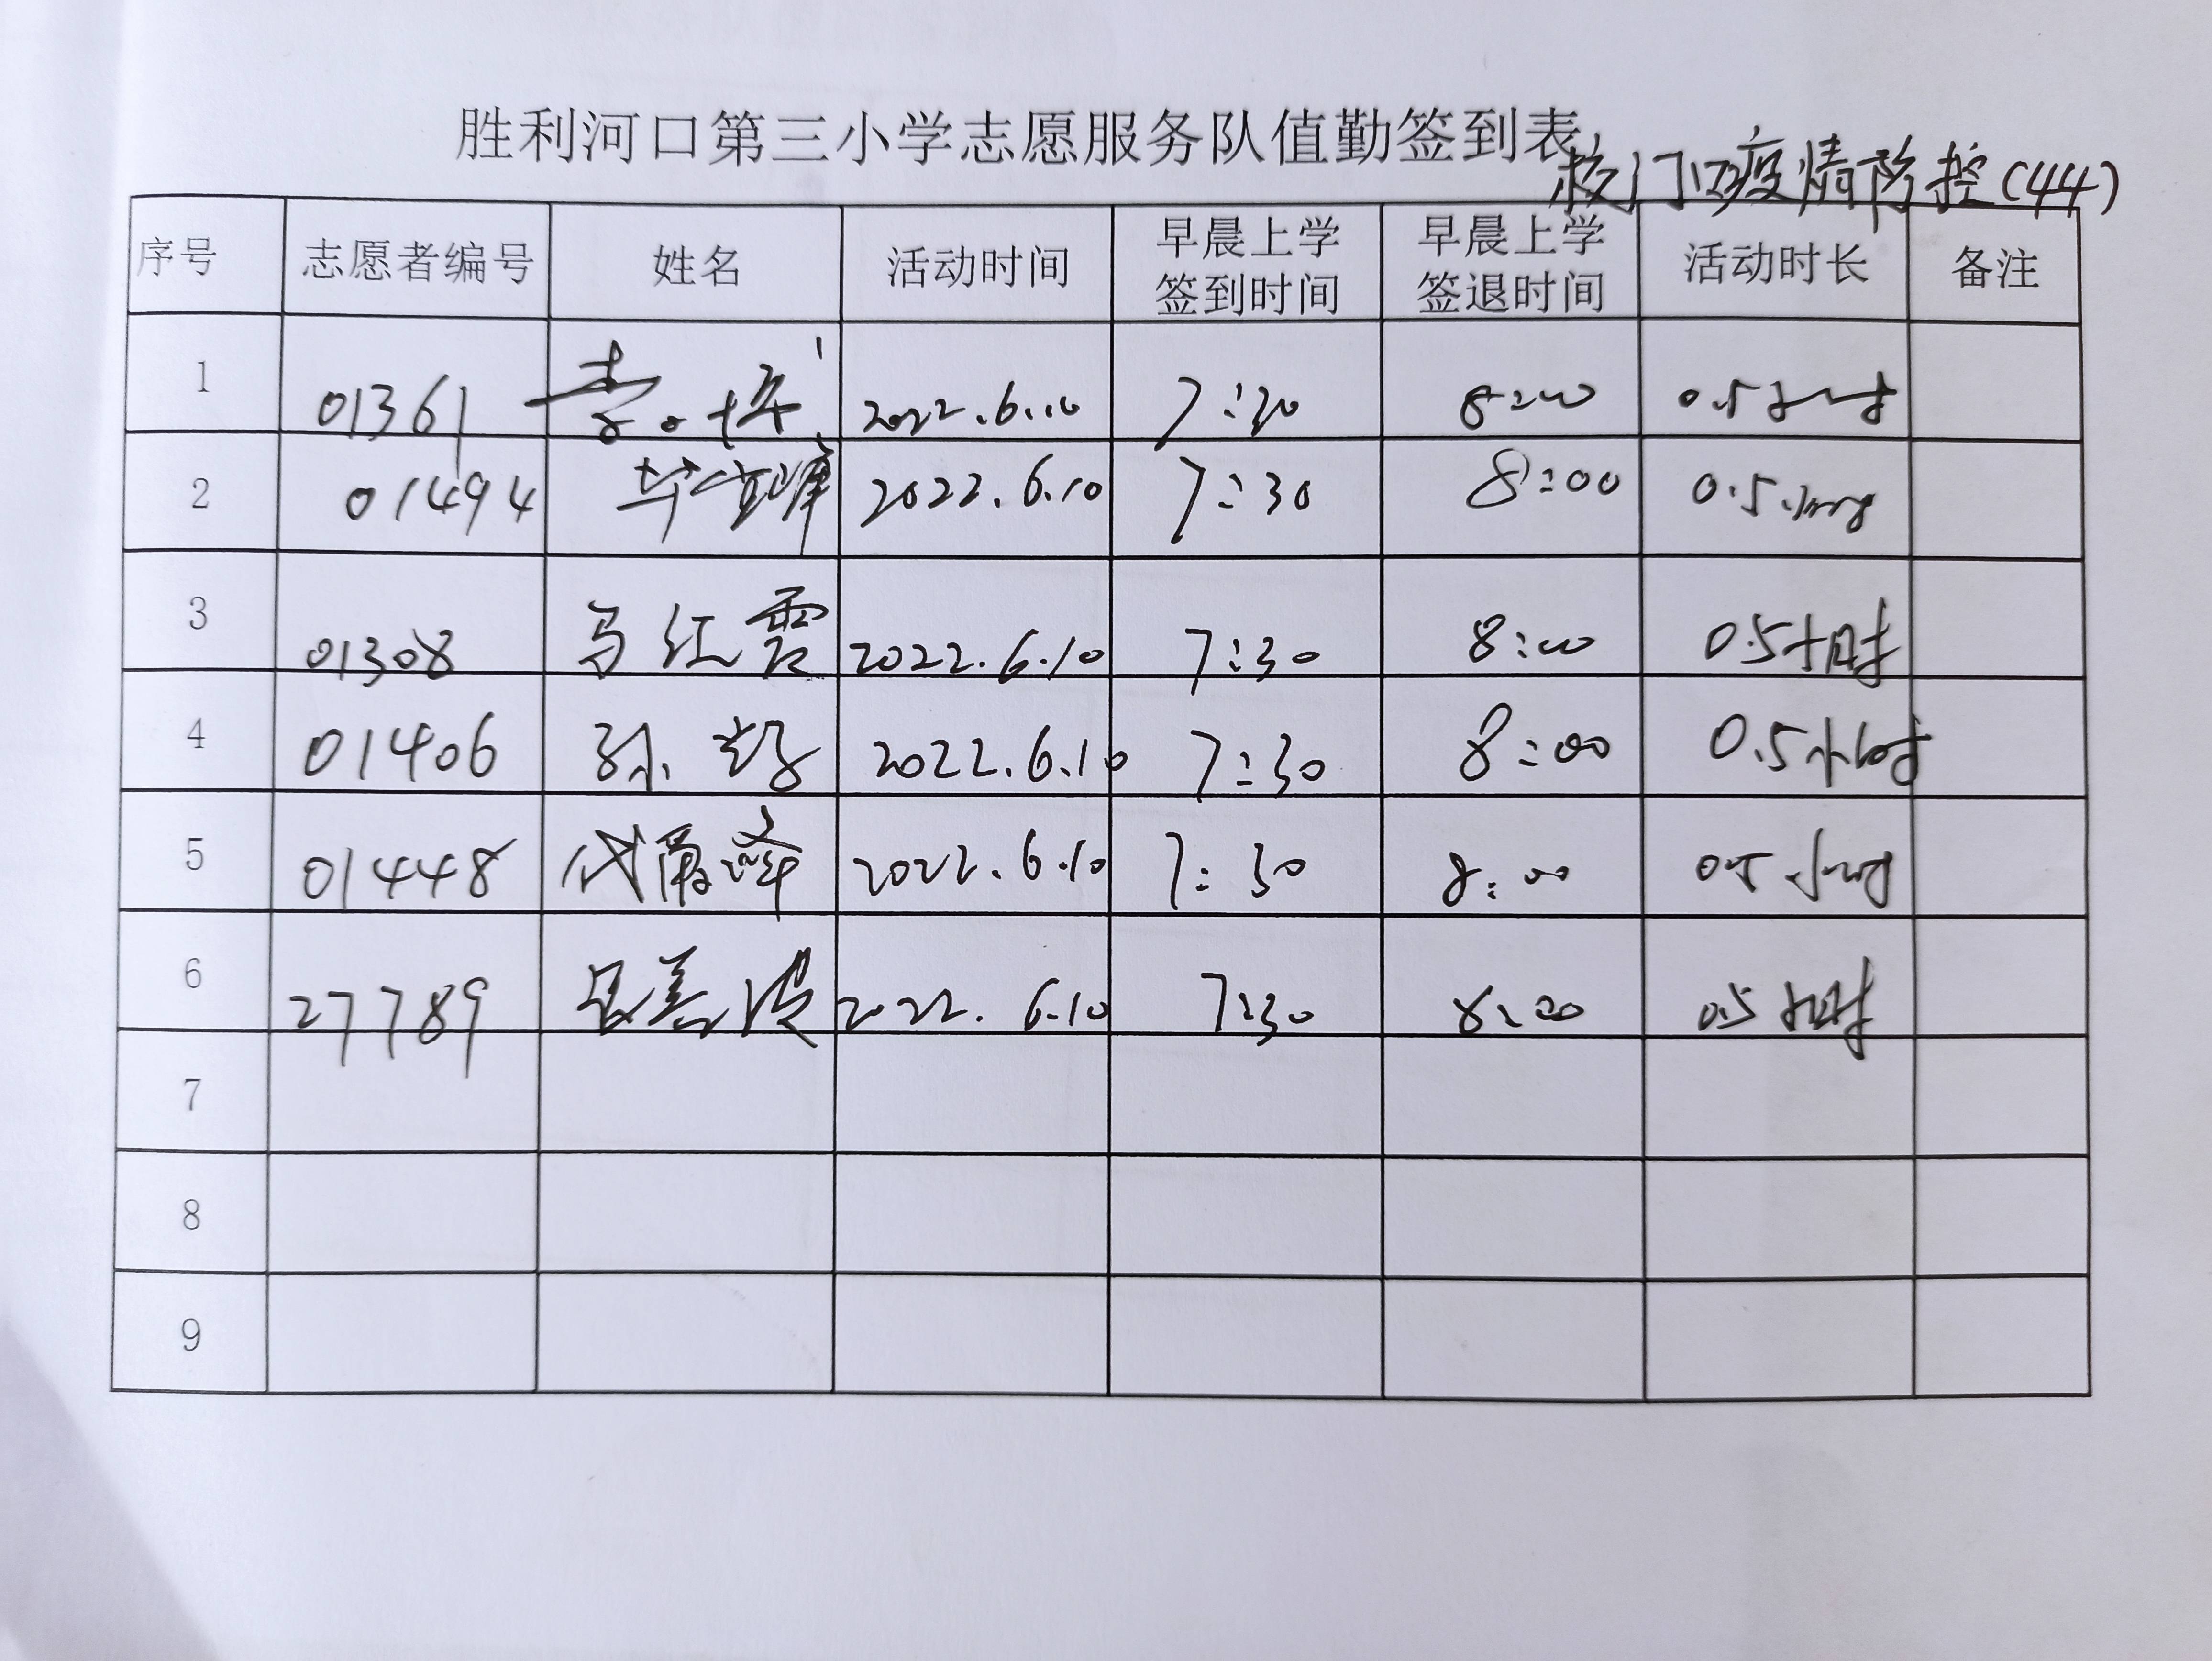 胜利河口第三小学志愿服务队值勤签到表
校门口疫情防控(44)
序号 志愿者编号 姓名 活动时间 早晨上学签到时间 早晨上学签退时间 活动时长 备注
1 01361 2022.6.10 7:30 8:00 0.5小时
2 01494 2022.6.10 7:30 8:00 0.5小时
3 01308 马红霞 2022.6.10 7:30 8:00 0.5小时
4 01406 孙 2022.6.10 7:30 8:00 0.5小时
5 01448 代霞峰 2022.6.10 7:30 8:00 0.5小时
6 27789 2022.6.10 7:30 8:00 0.5小时
7
8
9